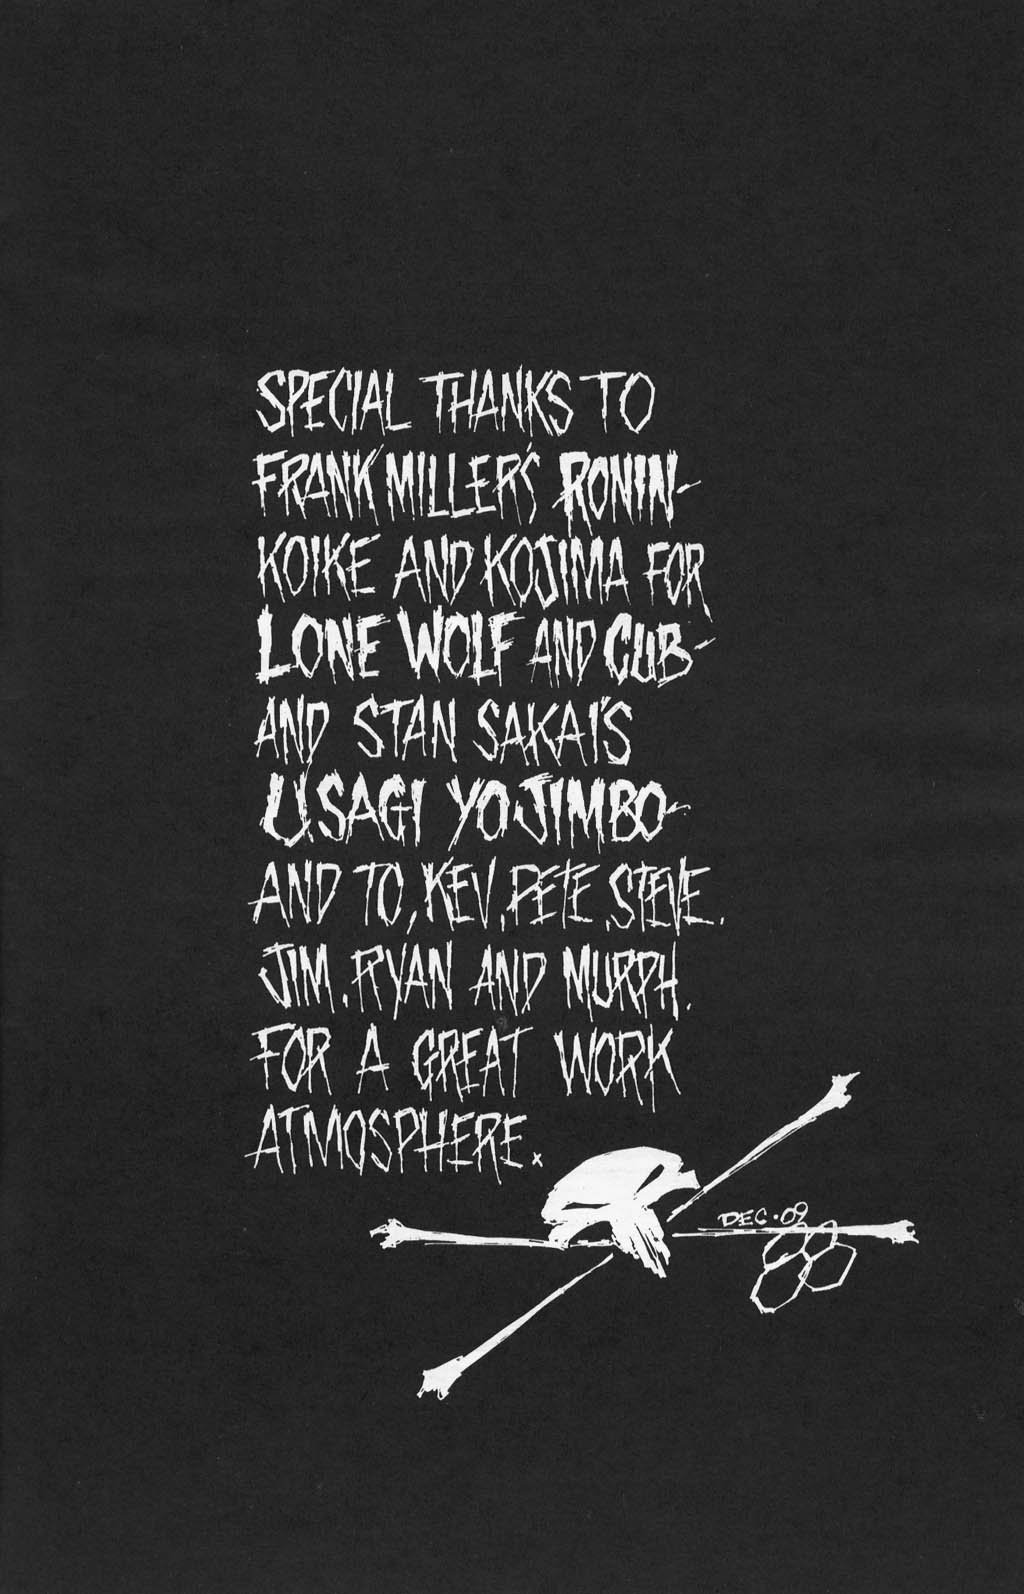 SPECIAL THANKS TO
FRANK MILLER'S RONIN-
KOIKE AND KOJIMA FOR
LONE WOLF AND CUB-
AND STAN SAKAI'S
USAGI YOJIMBO-
AND TO, KEV, PETE, STEVE,
JIM, RYAN AND MURPH,
FOR A GREAT WORK
ATMOSPHERE.
DEC.09